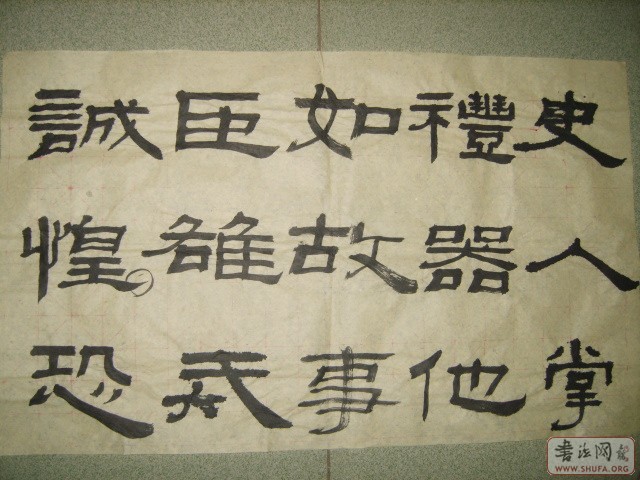 史人掌
禮器他
如故事
臣雄戒
誠惶恐
書法网
WWW.SHUFA.ORG